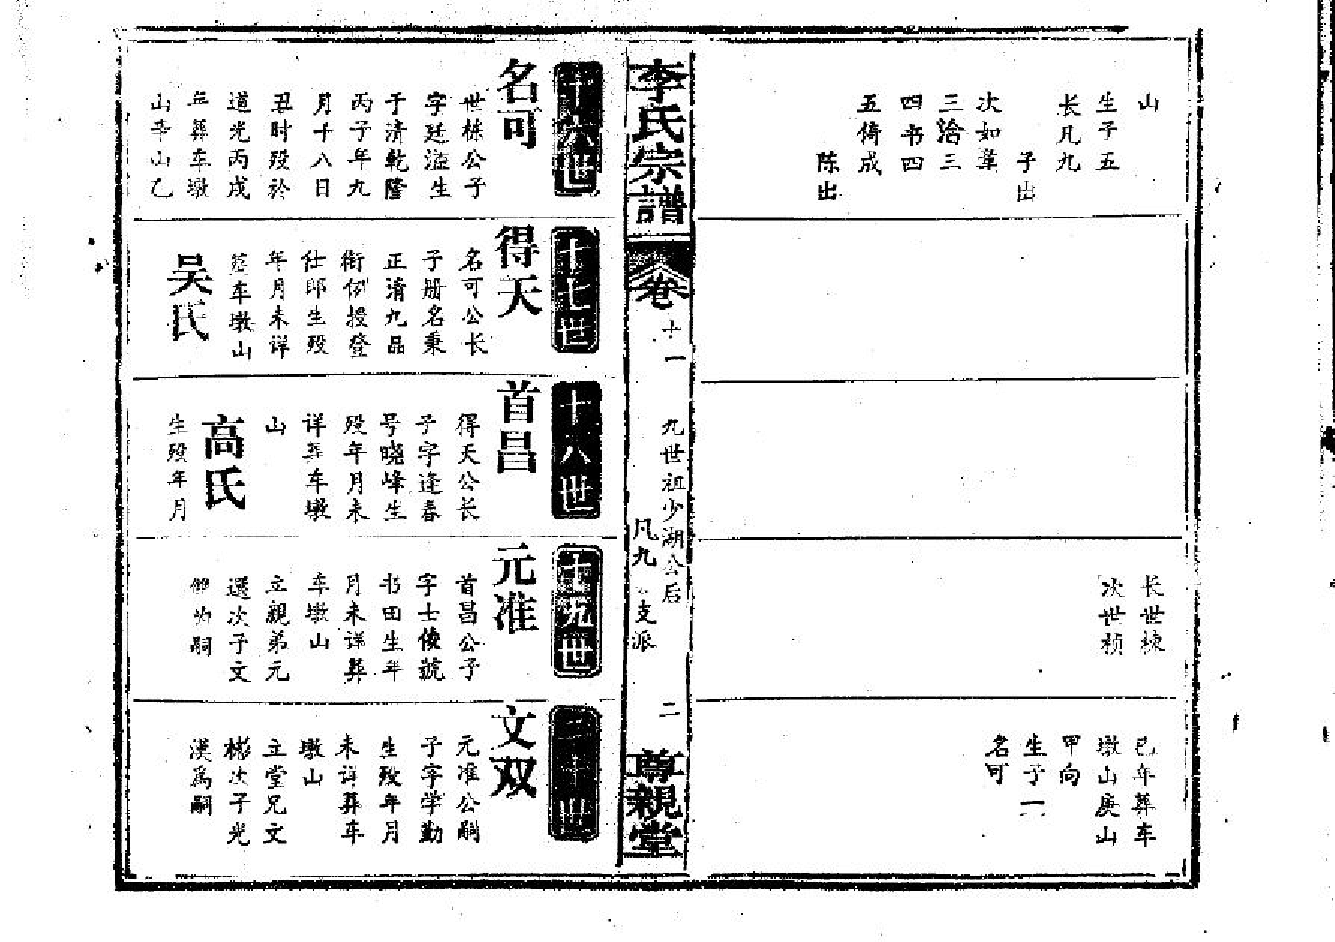 山
生子五
长凡九
子出
次如草
三洽三
四书四
五倚成
陈出
长世栋
次世桢
已年葬车
墩山庚山
甲向
生子一
名可
李氏宗譜
卷
十一
九世祖少湖公后
凡九 支派
二
尊親堂
十六世
名可
世栋公子
字廷溢生
于清乾隆
丙子年九
月十八日
丑时殁於
道光丙戌
年葬车墩
山辛山乙
十七世
得天
名可公长
子册名秉
正清九品
衔例授登
仕郎生殁
年月未详
葬车墩山
吴氏
十八世
首昌
得天公长
子字逢春
号晓峰生
殁年月未
详葬车墩
山
高氏
生殁年月
十九世
元准
首昌公子
字士俊號
书田生年
月未详葬
车墩山
立親弟元
選次子文
双為嗣
二十世
文双
元准公嗣
子字学勤
生殁年月
未详葬车
墩山
立堂兄文
彬次子光
漢為嗣